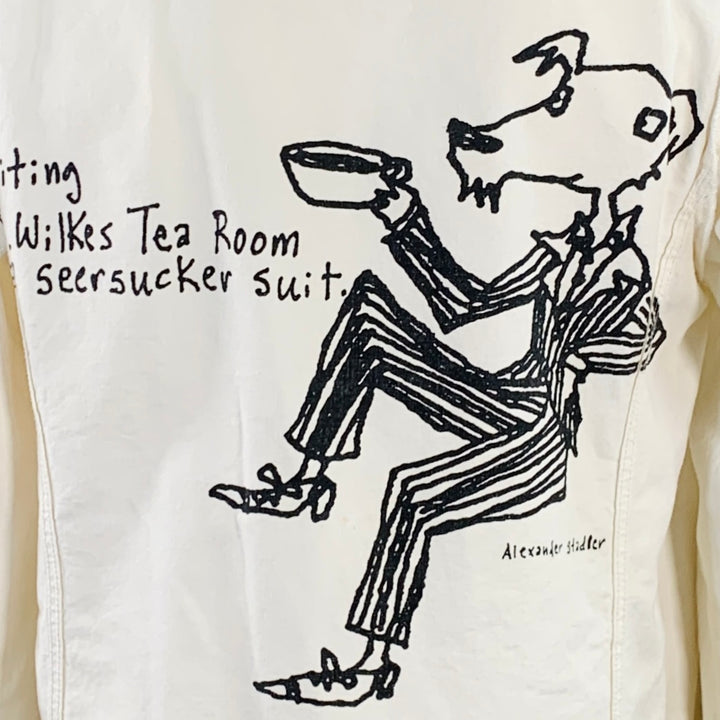 iting
Wilkes Tea Room
seersucker suit.
Alexander Stadler